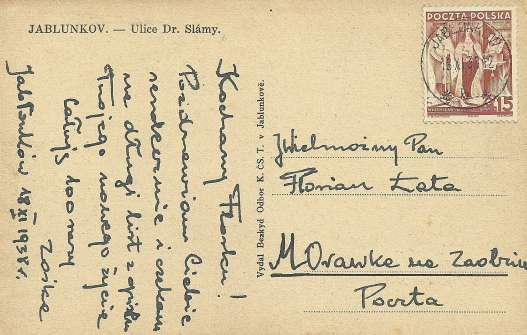 JABLUNKOV. — Ulice Dr. Slámy.
POCZTA POLSKA
15
Kochany Florku!
Pozdrawiam Ciebie
serdecznie i czekam
na długi list z opisem
Twojego nowego życia
Całuję 100 razy
Zośka
Jabłonków 18 XI 1938 r.
Vydal Bezkyd Odbor K. ČS. T. v Jablunkově.
JWielmożny Pan
Florian Łata
MOrawka na Zaolziu
Poczta